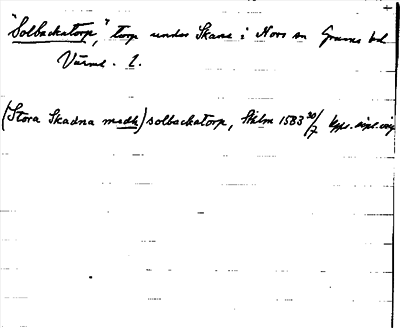 "Solbackatorp," torp under Skara i Nors sn Grums hd
Värml. 1.
(Stora Skadna medh) solbackatorp, Sthlm 1583 30/7 Kps. dipl. orig